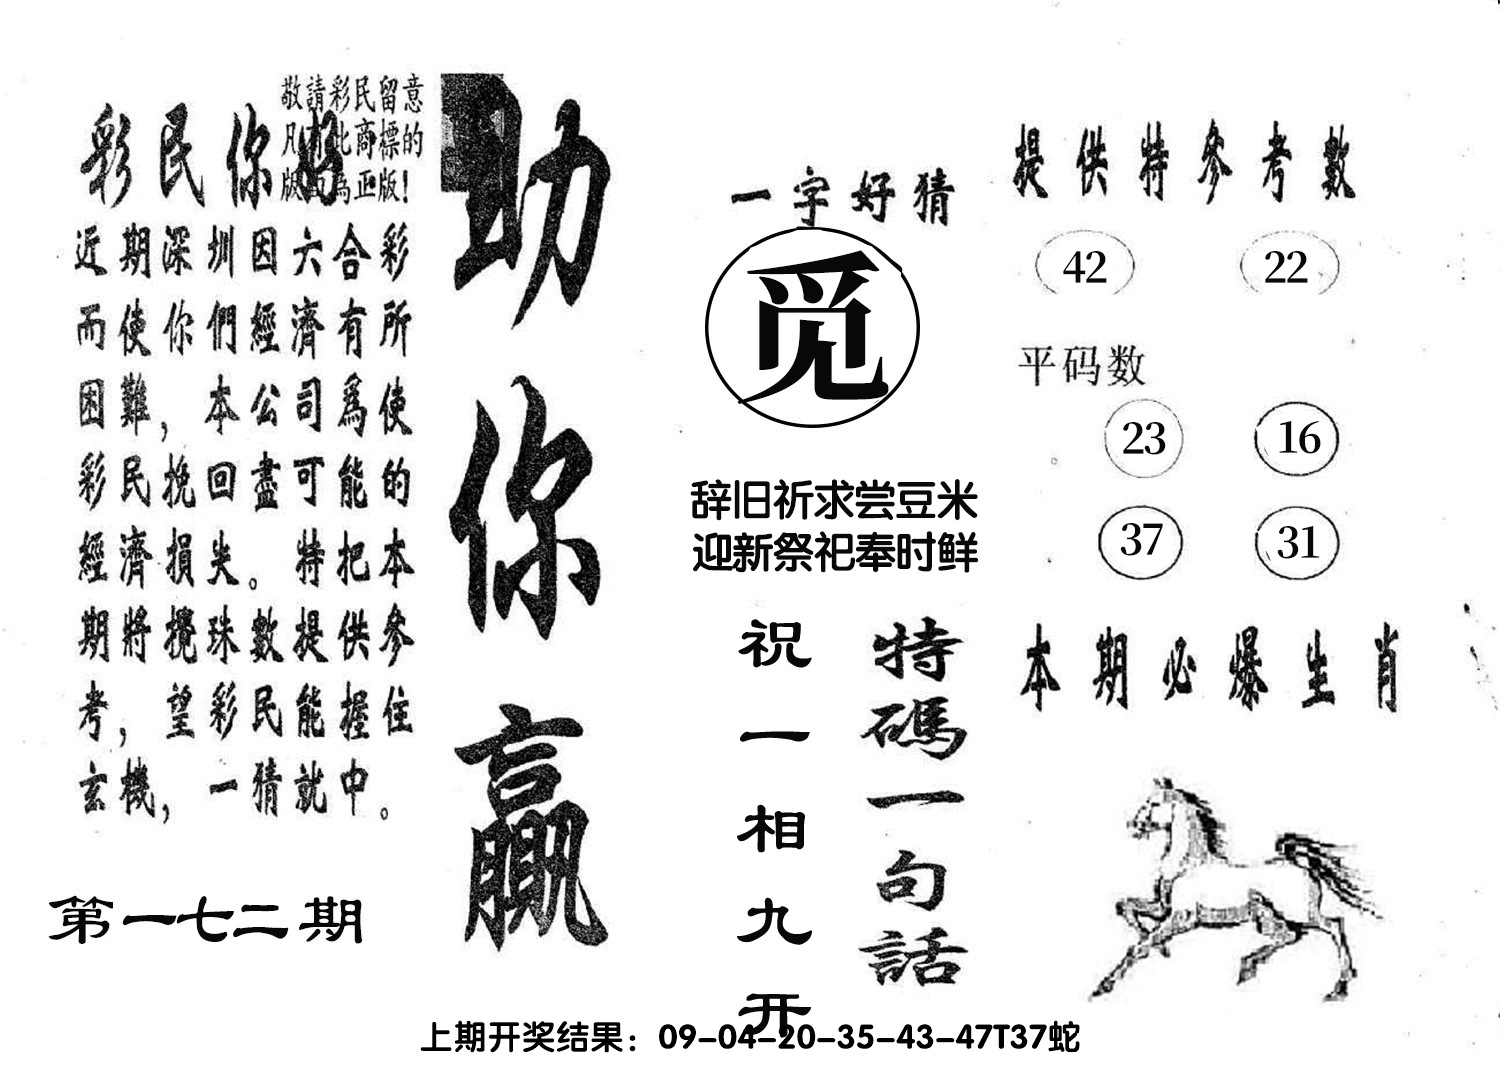 敬請彩民留意
凡有此商標的
版面為正版!
彩民你好
近期深圳因六合彩
而使你們經濟有所
困難,本公司爲使
彩民挽回盡可能的
經濟損失。特把本
期將攪珠數提供參
考,望彩民能握住
玄機,一猜就中。
第一七二期
助你贏
一字好猜
觅
辞旧祈求尝豆米
迎新祭祀奉时鲜
特碼一句話
祝一相九开
提供特參考數
42 22
平码数
23 16
37 31
本期必爆生肖
上期开奖结果：09-04-20-35-43-47T37蛇